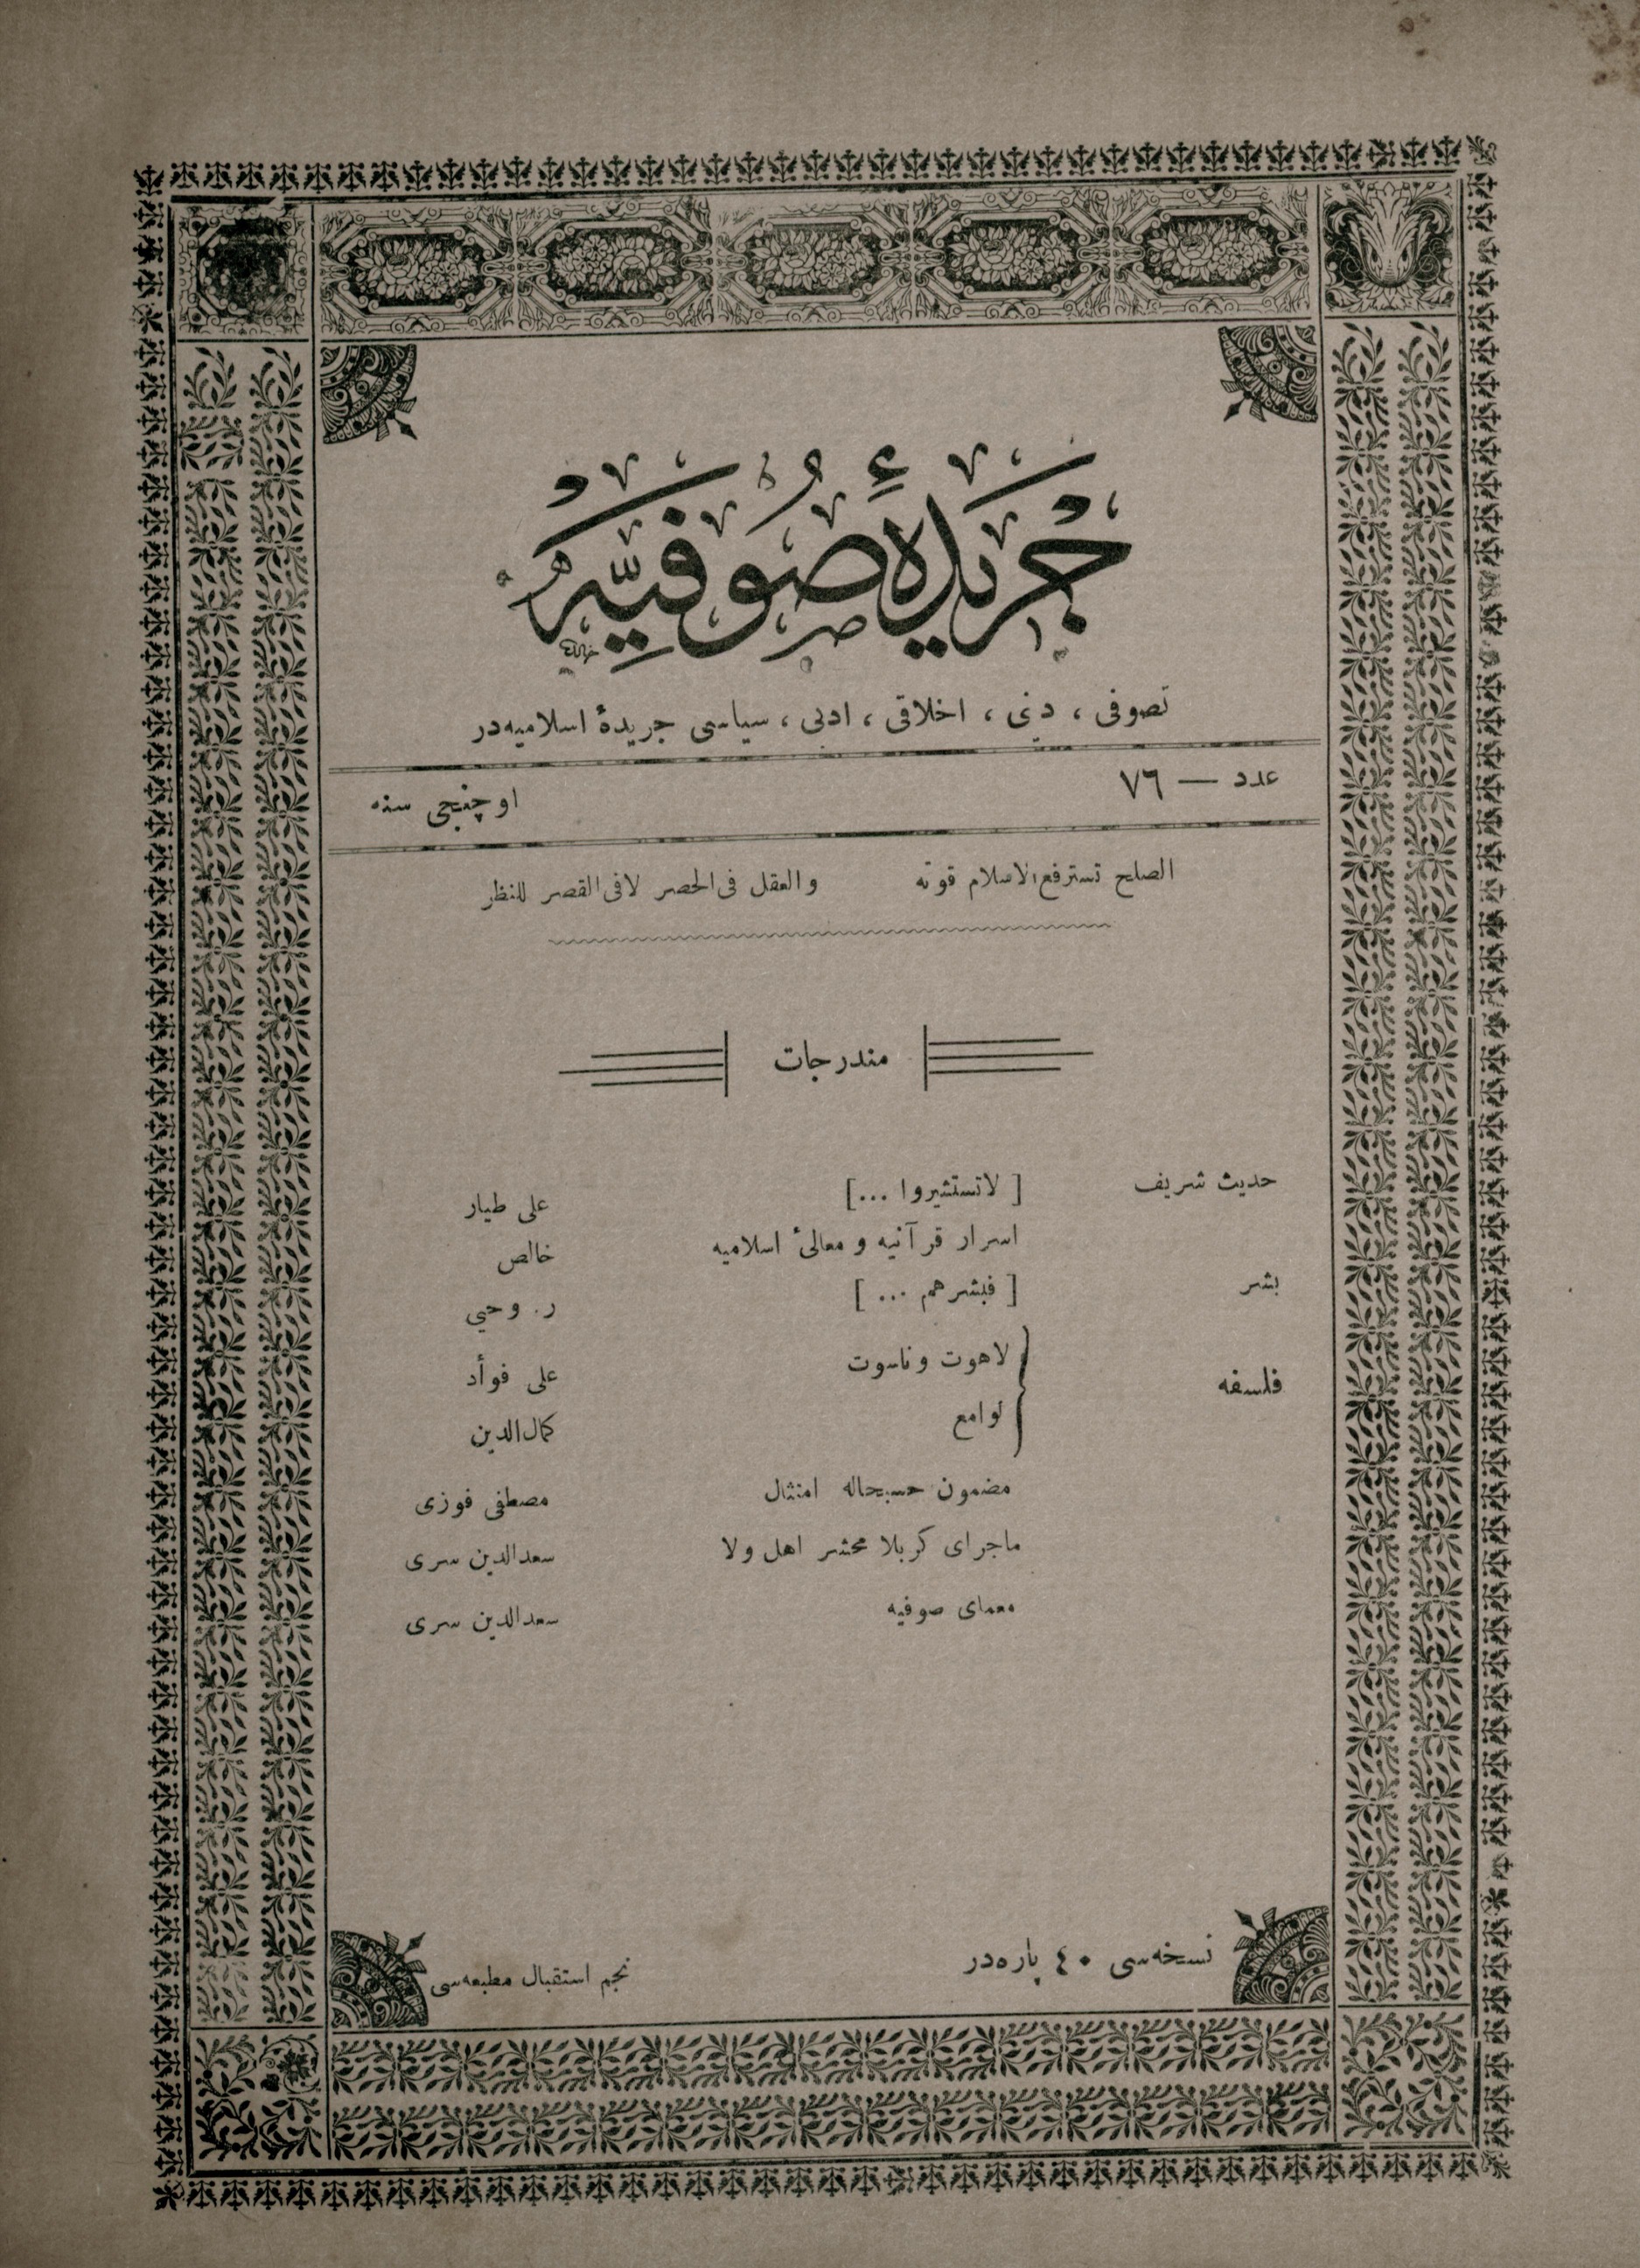 جريدهٔ صوفيه
تصوفی ، دینی ، اخلاقی ، ادبی ، سیاسی جریدهٔ اسلامیه‌در
عدد — ٧٦ اوچنجی سنه
الصلح تسترفع الاسلام قوته والعقل فی الحصر لافی القصر للنظر
مندرجات
حدیث شریف [ لاتستشیروا ... ] علی طیار
اسرار قرآنیه و معالیٔ اسلامیه خالص
بشر [ فبشرهم ... ] ر. وحیی
فلسفه
لاهوت وناسوت علی فوأد
لوامع کمال‌الدین
مضمون حسبحاله امتثال مصطفی فوزی
ماجرای کربلا محشر اهل ولا سعدالدین سری
معمای صوفیه سعدالدین سری
نسخه‌سی ٤٠ پاره‌در نجم استقبال مطبعه‌سی